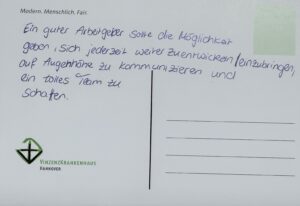 Modern. Menschlich. Fair.
Ein guter Arbeitgeber sollte die Möglichkeit
geben, sich jederzeit weiterzuentwickeln/einzubringen,
auf Augenhöhe zu kommunizieren und
ein tolles Team zu
schaffen.
VINZENZKRANKENHAUS
HANNOVER